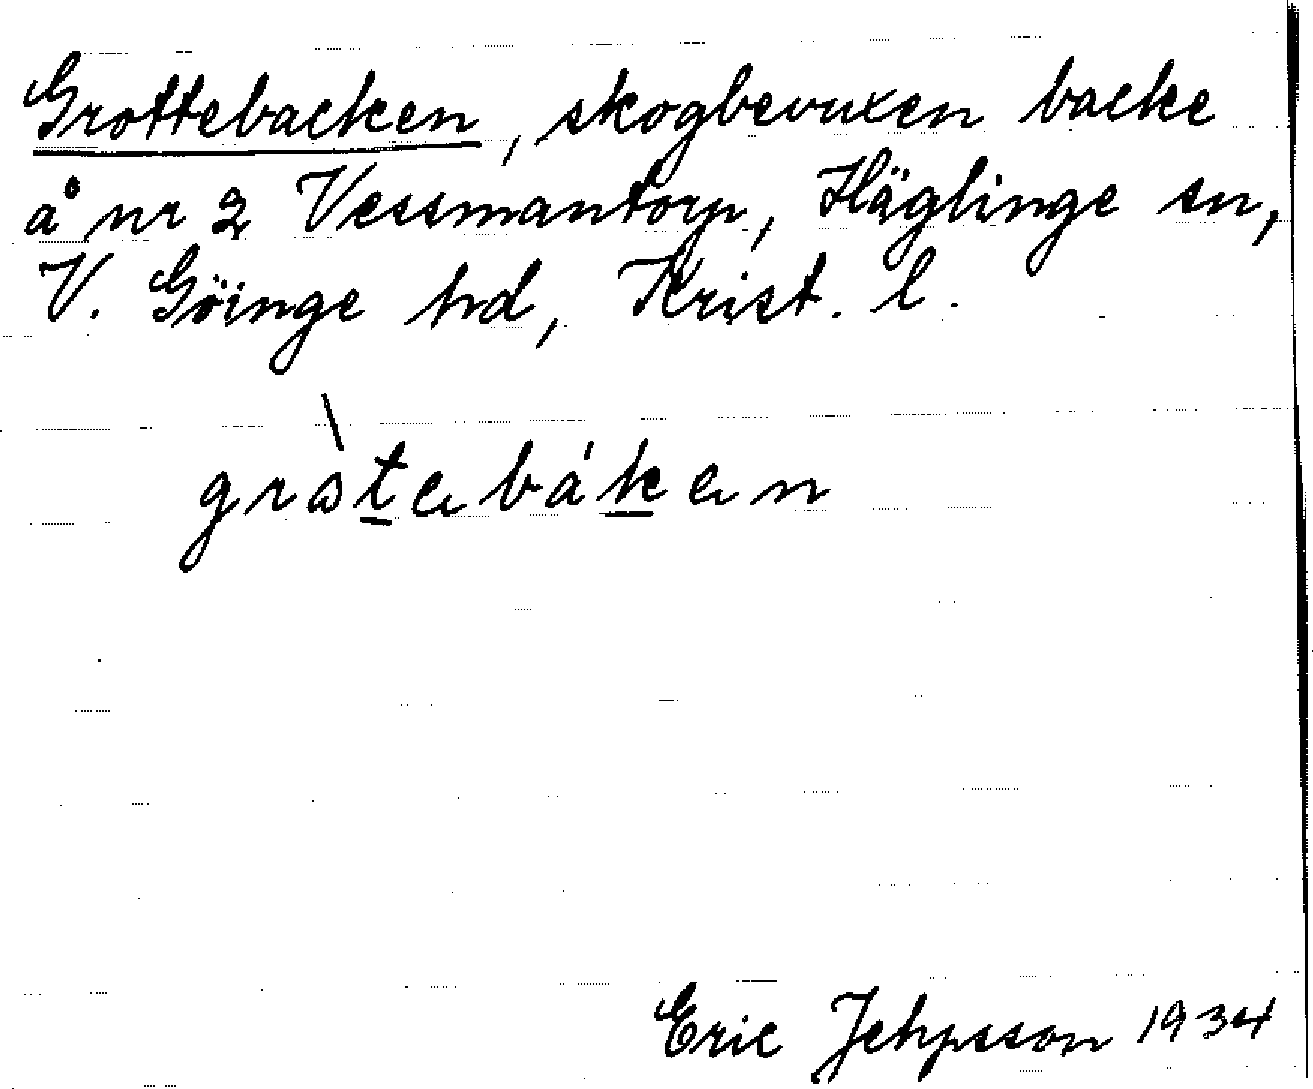 Grottebacken, skogbevuxen backe
å nr 2 Vessmantorp, Häglinge sn,
V. Göinge hd, Krist. l.
gràtebáken
Eric Jehpsson 1934